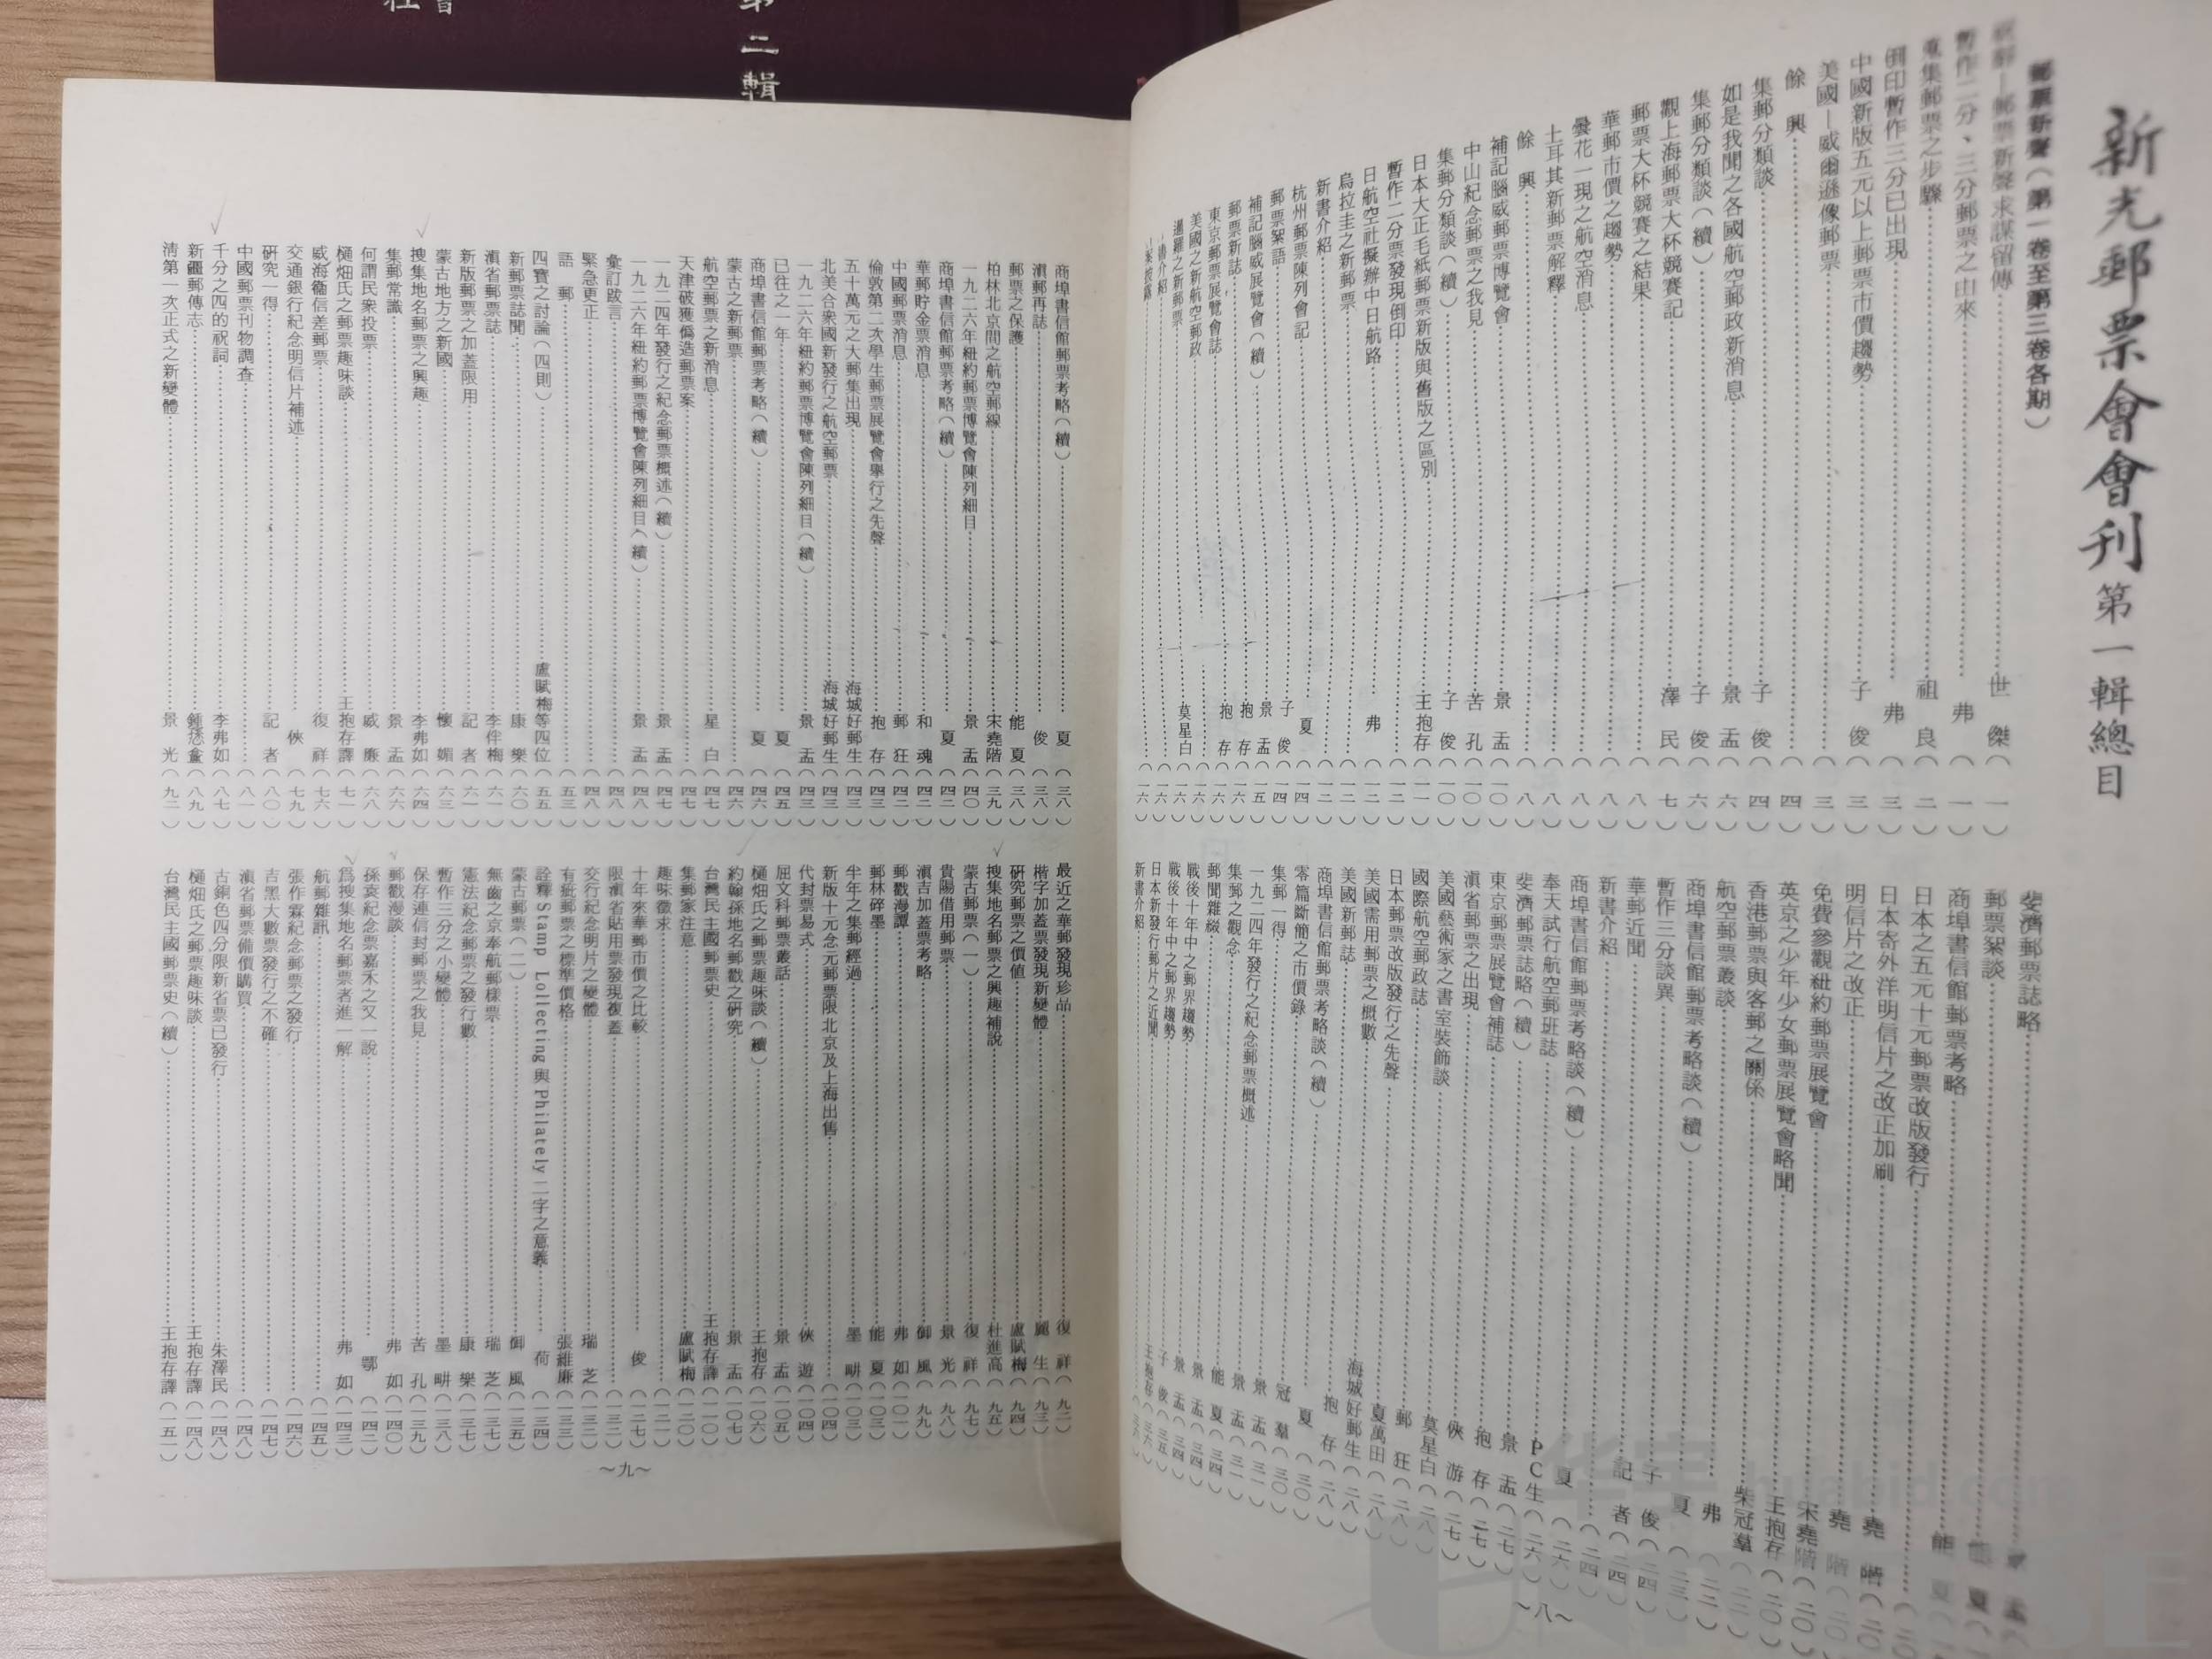 新光郵票會會刊 第一輯總目
郵票新聲（第一卷至第三卷各期）
郵票新聲求謀留傳……世 傑（一）
暫作二分、三分郵票之由來……弗（一）
集郵票之步驟……祖 良（二）
倒印暫作三分已出現……弗（三）
中國新版五元以上郵票市價趨勢……子 俊（三）
美國—威爾遜像郵票……（三）
餘 興……（四）
集郵分類談……子 俊（四）
如是我聞之各國航空郵政新消息……景 盂（六）
集郵分類談（續）……子 俊（六）
觀上海郵票大杯競賽記……澤 民（七）
郵票大杯競賽之結果……（八）
華郵市價之趨勢……（八）
曇花一現之航空消息……（八）
土耳其新郵票解釋……（八）
餘 興……（八）
補記腦威郵票博覽會……景 盂（一〇）
中山紀念郵票之我見……苦 孔（一〇）
集郵分類談（續）……子 俊（一〇）
日本大正毛紙郵票新版與舊版之區別……王抱存（一一）
暫作二分票發現倒印……（一二）
日航空社擬辦中日航路……弗（一二）
烏拉圭之新郵票……（一二）
新書介紹……（一二）
杭州郵票陳列會記……夏（一四）
郵票絮語……子 俊（一四）
補記腦威展覽會（續）……景 盂（一五）
郵票新誌……抱 存（一六）
東京郵票展覽會誌……抱 存（一六）
美國之新航空郵政……（一六）
暹羅之新郵票……莫星白（一六）
書介紹……（一六）
……（一六）
斐濟郵票誌略
郵票絮談……夏
商埠書信館郵票考略……能 夏
日本之五元十元郵票改版發行
日本寄外洋明信片之改正加刷……堯 階（二〇）
明信片之改正……堯 階（二〇）
免費參觀紐約郵票展覽會……宋堯階（二〇）
英京之少年少女郵票展覽會略聞……王抱存（二〇）
香港郵票與客郵之關係……柴冠羣（二二）
航空郵票叢談……弗（二三）
商埠書信館郵票考略談（續）……夏（二三）
暫作三分談異……子 俊（二四）
華郵近聞……記 者（二四）
新書介紹……（二四）
商埠書信館郵票考略談（續）……夏（二六）
奉天試行航空郵班誌……PC生（二六）
斐濟郵票誌略（續）……景 盂（二七）
東京郵票展覽會補誌……抱 存（二七）
滇省郵票之出現……俠 游（二七）
美國藝術家之書室裝飾談……莫星白（二八）
國際航空郵政誌……郵 狂（二八）
日本郵票改版發行之先聲……夏萬田（二八）
美國需用郵票之概數……海城好郵生（二八）
美國新郵誌……抱 存（二八）
商埠書信館郵票考略談（續）……夏（三〇）
零篇斷簡之市價錄……冠 羣（三〇）
集郵一得……景 盂（三一）
一九二四年發行之紀念郵票概述……景 盂（三一）
集郵之觀念……能 夏（三四）
郵聞雜綴……景 盂（三四）
戰後十年中之郵界趨勢……景 盂（三四）
戰後十年中之郵界趨勢……子 俊（三五）
日本新發行郵片之近聞……王抱存（三六）
新書介紹……（三六）
～八～
商埠書信館郵票考略（續）……夏（三八）
滇郵再誌……俊（三八）
郵票之保護……能 夏（三八）
柏林北京間之航空郵線……宋堯階（三九）
一九二六年紐約郵票博覽會陳列細目……景 盂（四〇）
商埠書信館郵票考略（續）……夏（四二）
華郵貯金票消息……和 魂（四二）
中國郵票消息……郵 狂（四二）
倫敦第二次學生郵票展覽會舉行之先聲……抱 存（四三）
五十萬元之大郵集出現……海城好郵生（四三）
北美合衆國新發行之航空郵票……海城好郵生（四三）
一九二六年紐約郵票博覽會陳列細目（續）……景 盂（四三）
已往之一年……夏（四五）
商埠書信館郵票考略（續）……夏（四六）
蒙古之新郵票……（四六）
航空郵票之新消息……星 白（四七）
天津破獲僞造郵票案……（四七）
一九二四年發行之紀念郵票概述（續）……景 盂（四七）
一九二六年紐約郵票博覽會陳列細目（續）……景 盂（四八）
彙訂跋言……（四八）
緊急更正……（四八）
語 郵……（五三）
四寶之討論（四則）……盧賦梅等四位（五五）
新郵票誌聞……康 樂（六〇）
滇省郵票誌……李仵梅（六一）
新版郵票之加蓋限用……記 者（六一）
蒙古地方之新國……懷 媚（六三）
搜集地名郵票之興趣……李弗如（六四）
集郵常識……景 盂（六六）
何謂民衆投票……威 廉（六八）
樋畑氏之郵票趣味談……王抱存譯（七一）
威海衞信差郵票……復 祥（七六）
交通銀行紀念明信片補述……俠（七九）
研究一得……記 者（八〇）
中國郵票刊物調查……（八一）
千分之四的祝詞……李弗如（八七）
新疆郵傳志……鍾愻盦（八九）
清第一次正式之新變體……景 光（九二）
最近之華郵發現珍品……復 祥（九二）
楷字加蓋票發現新變體……麗 生（九三）
研究郵票之價值……盧賦梅（九四）
搜集地名郵票之興趣補說……杜進高（九五）
蒙古郵票（一）……復 祥（九七）
貴陽借用郵票……景 光（九八）
滇吉加蓋票考略……御 風（九九）
郵戳漫譚……弗 如（一〇一）
郵林碎墨……能 夏（一〇三）
半年之集郵經過……墨 畊（一〇三）
新版十元念元郵票限北京及上海出售……（一〇四）
代封票易式……俠 遊（一〇四）
屈文科郵票叢話……景 盂（一〇五）
樋畑氏之郵票趣味談（續）……王抱存（一〇六）
約翰孫地名郵戳之研究……景 盂（一〇七）
台灣民主國郵票史……王抱存譯（一一〇）
集郵家注意……盧賦梅（一二〇）
趣味徵求……（一二一）
十年來華郵市價之比較……俊（一二七）
限滇省貼用票發現複蓋……（一三二）
交行紀念明片之變體……瑞 芝（一三二）
有疵郵票之標準價格……張維廉（一三三）
詮釋Stamp Lollecting與Philately二字之意義……荷（一三四）
蒙古郵票（二）……御 風（一三五）
無齒之京奉航郵樣票……瑞 芝（一三七）
憲法紀念郵票之發行數……康 樂（一三七）
暫作三分之小變體……墨 畊（一三八）
保存連信封郵票之我見……苦 孔（一三九）
郵戳漫談……弗 如（一四〇）
孫哀紀念票嘉禾之又一說……鄂（一四二）
爲搜集地名郵票者進一解……弗 如（一四三）
航郵雜訊……（一四五）
張作霖紀念郵票之發行……（一四六）
吉黑大數票發行之不確……（一四七）
滇省郵票備價購買……（一四八）
古銅色四分限新省票已發行……朱澤民（一四八）
樋畑氏之郵票趣味談……王抱存譯（一四八）
台灣民主國郵票史（續）……王抱存譯（一五一）
～九～
第二輯